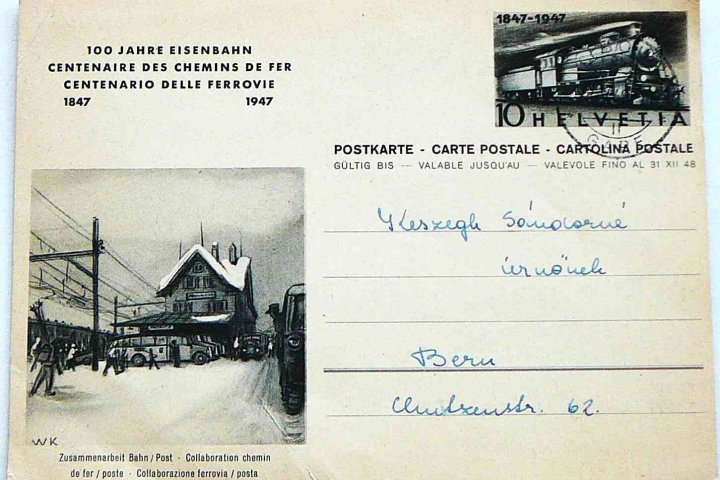 100 JAHRE EISENBAHN
CENTENAIRE DES CHEMINS DE FER
CENTENARIO DELLE FERROVIE
1847 1947
1847-1947
10 HELVETIA
GARE
POSTKARTE - CARTE POSTALE - CARTOLINA POSTALE
GÜLTIG BIS — VALABLE JUSQU'AU — VALEVOLE FINO AL 31 XII 48
Keszegh Sándorné
úrnőnek
Bern
62.
WK
Zusammenarbeit Bahn / Post · Collaboration chemin
de fer / poste · Collaborazione ferrovia / posta